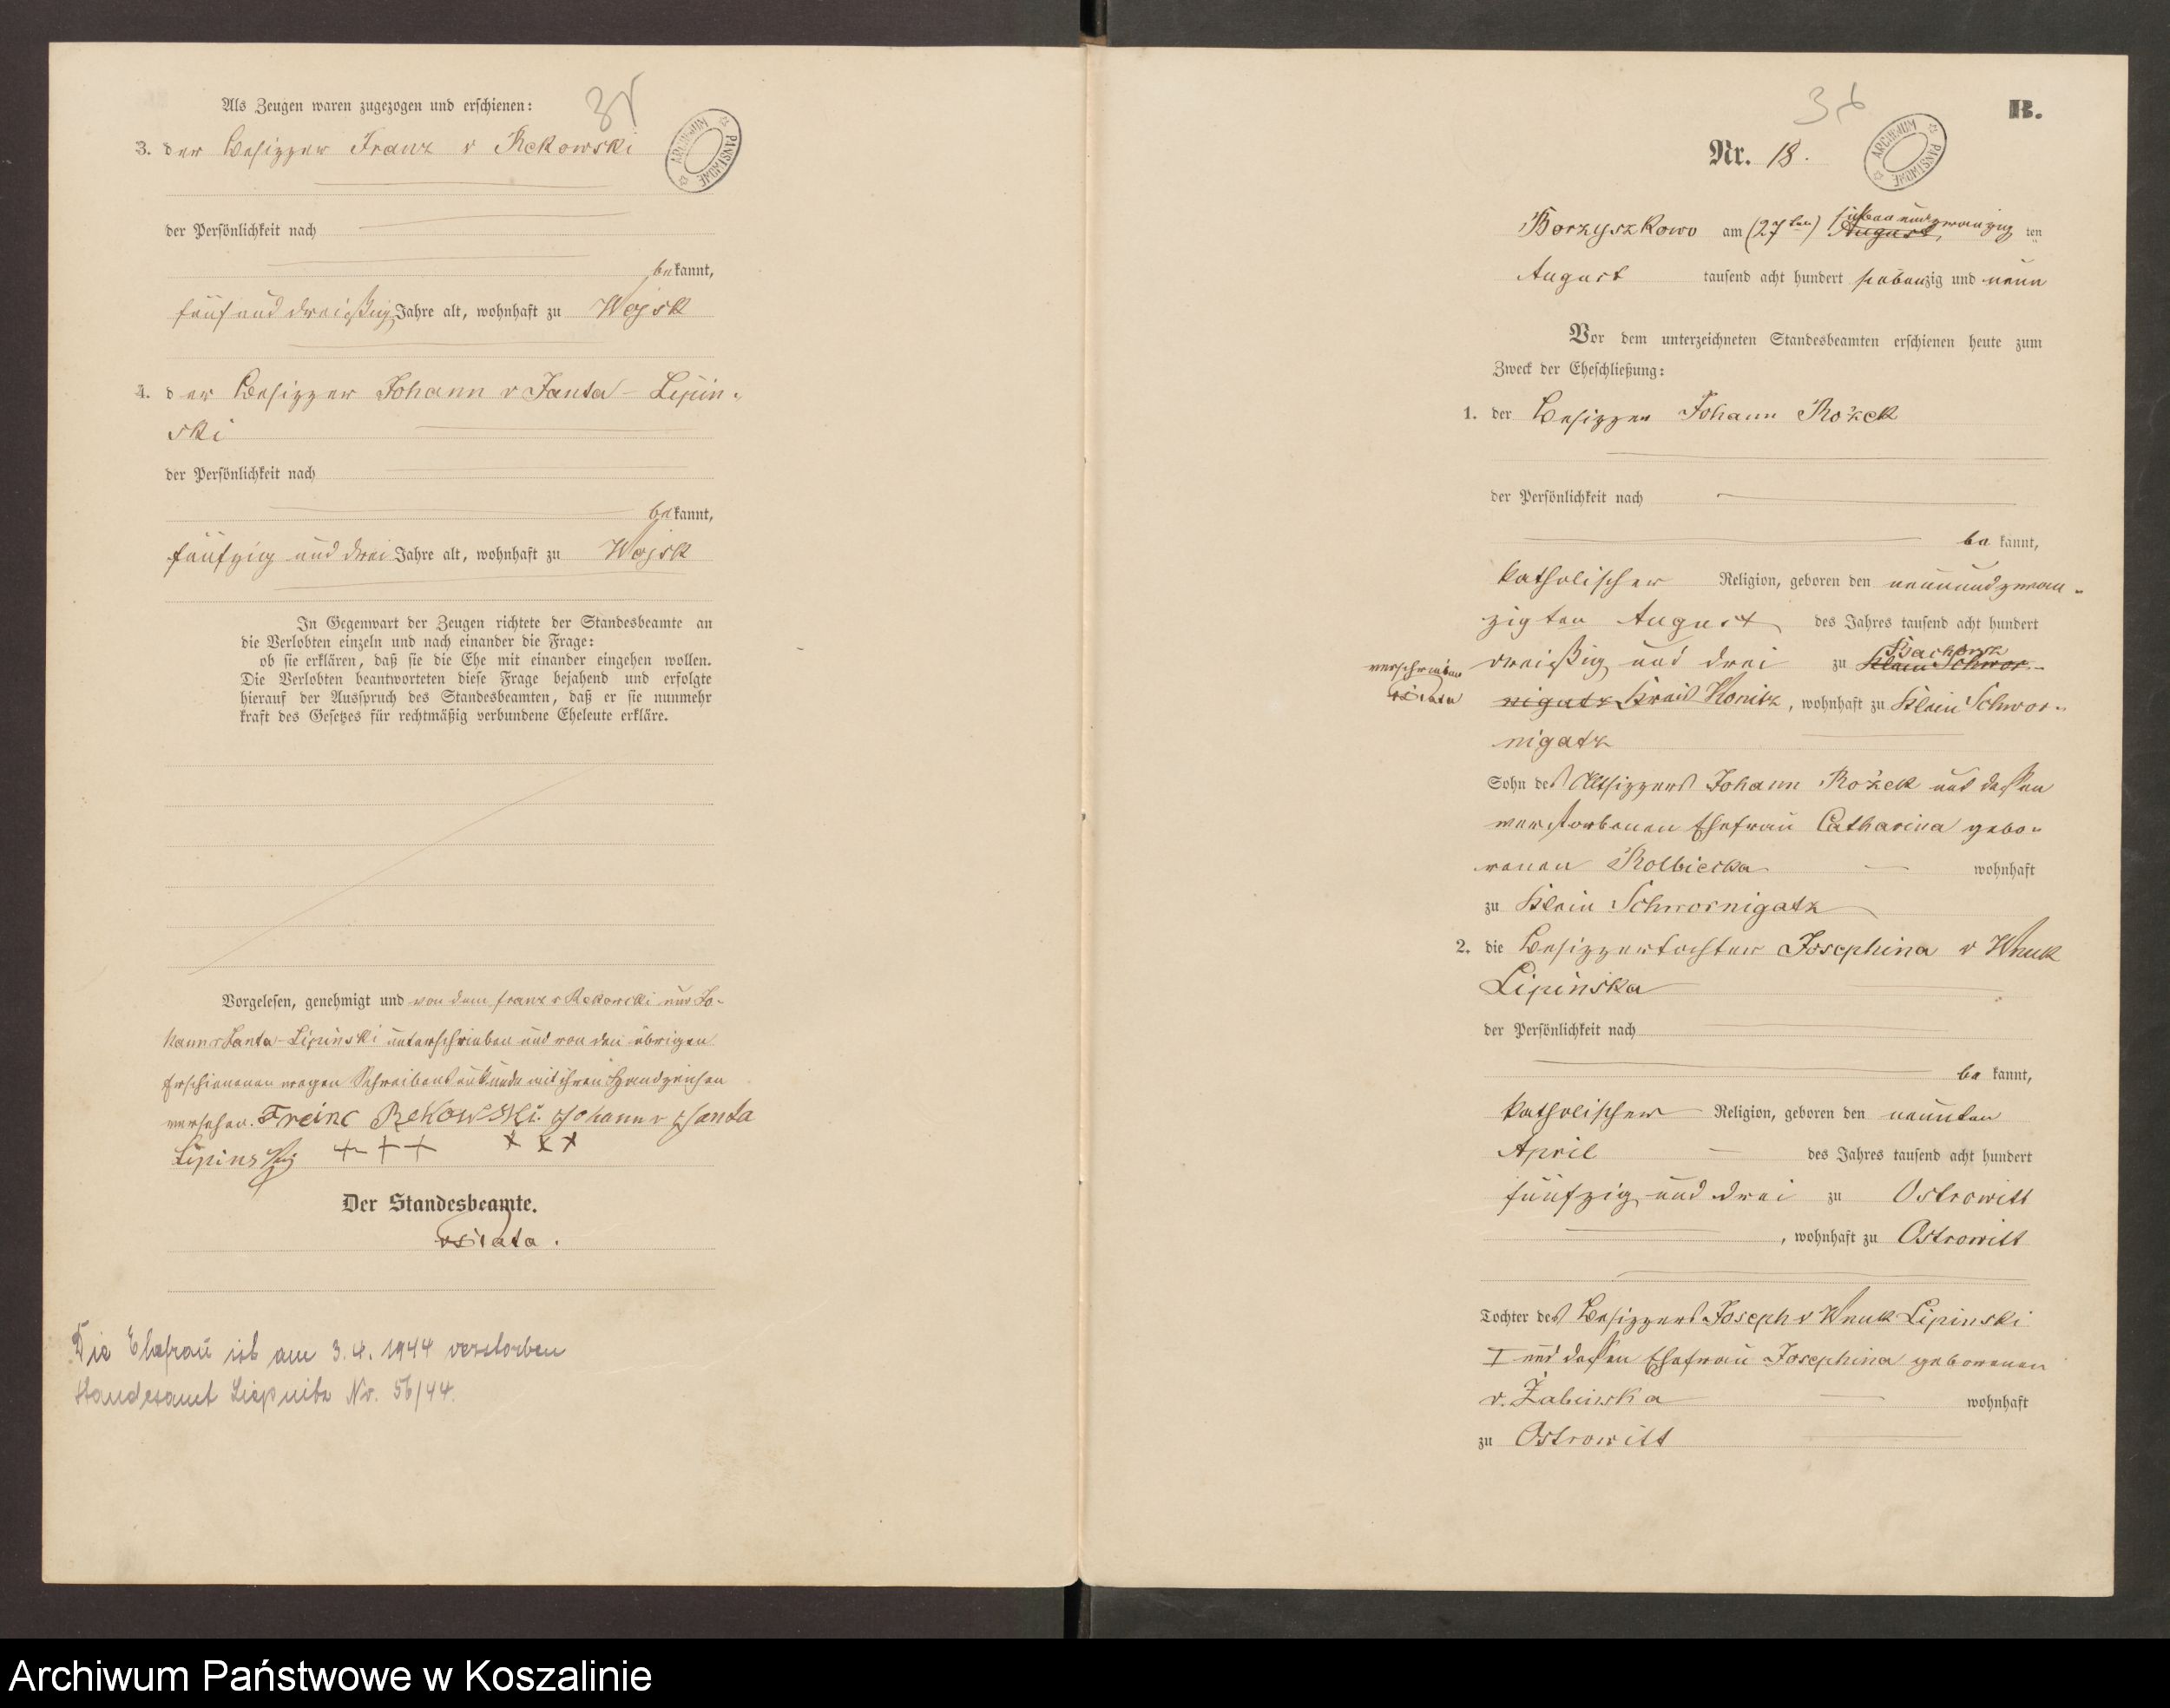 Als Zeugen waren zugezogen und erschienen:
35
3. der Besitzer Franz v Rekowski
ARCHIWUM PAŃSTWOWE
der Persönlichkeit nach
bekannt,
fünf und dreißig Jahre alt, wohnhaft zu Wojsk
4. der Besitzer Johann v Janta-Lipin-
ski
der Persönlichkeit nach
bekannt,
fünfzig und drei Jahre alt, wohnhaft zu Wojsk
In Gegenwart der Zeugen richtete der Standesbeamte an
die Verlobten einzeln und nach einander die Frage:
ob sie erklären, daß sie die Ehe mit einander eingehen wollen.
Die Verlobten beantworteten diese Frage bejahend und erfolgte
hierauf der Ausspruch des Standesbeamten, daß er sie nunmehr
kraft des Gesetzes für rechtmäßig verbundene Eheleute erkläre.
Vorgelesen, genehmigt und von dem Franz v Rekowski und Jo-
hann v Janta-Lipinski unterschrieben und von den übrigen
Erschienenen wegen Schreibensunkunde mit ihren Handzeichen
versehen. Franc Rekowski. Johann v Janta
Lipinski +++ xxx
Der Standesbeamte.
Die Ehefrau ist am 3.4.1944 verstorben
Standesamt Liepnitz Nr. 56/44.
36
B.
Nr. 18.
ARCHIWUM PAŃSTWOWE
Borzyszkowo am (27ten) August, siebenundzwanzig ten
August tausend acht hundert siebenzig und neun
Vor dem unterzeichneten Standesbeamten erschienen heute zum
Zweck der Eheschließung:
1. der Besitzer Johann Rożek
der Persönlichkeit nach
be kannt,
katholischer Religion, geboren den neunundzwan-
zigten August des Jahres tausend acht hundert
dreißig und drei zu Klein Schwor-
verschrieben
nigatz Kreis Konitz, wohnhaft zu Klein Schwor-
nigatz
Sohn des Altsitzers Johann Rożek und dessen
verstorbenen Ehefrau Catharina gebo-
renen Kolbiecka wohnhaft
zu Klein Schwornigatz
2. die Besitzertochter Josephina v Wnuk
Lipinska
der Persönlichkeit nach
be kannt,
katholischer Religion, geboren den neunten
April des Jahres tausend acht hundert
fünfzig und drei zu Ostrowitt
, wohnhaft zu Ostrowitt
Tochter des Besitzers Joseph v Wnuk Lipinski
I und dessen Ehefrau Josephina geborenen
v. Żabinska wohnhaft
zu Ostrowitt
Archiwum Państwowe w Koszalinie